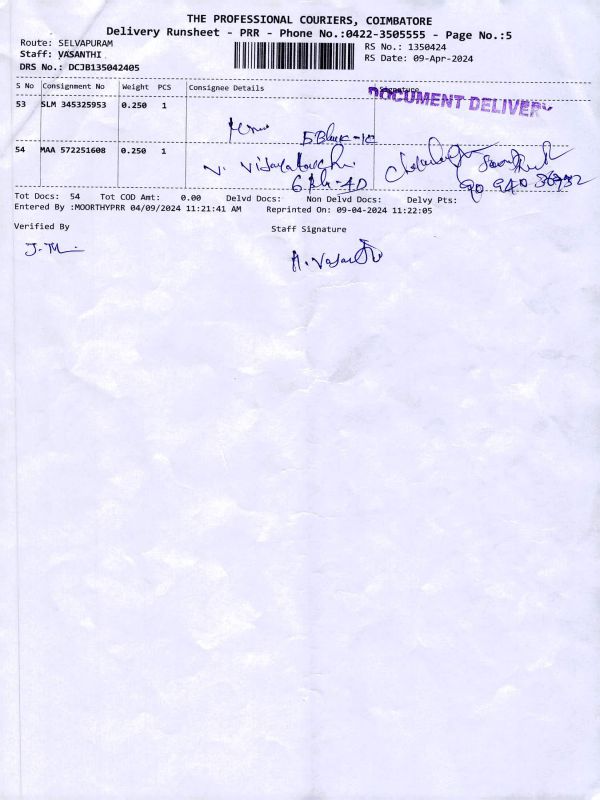 THE PROFESSIONAL COURIERS, COIMBATORE
Delivery Runsheet - PRR - Phone No.:0422-3505555 - Page No.:5
Route: SELVAPURAM
RS No.: 1350424
Staff: VASANTHI
RS Date: 09-Apr-2024
DRS No.: DCJB135042405
S No Consignment No Weight PCS Consignee Details Signature
DOCUMENT DELIVERY
53 SLM 345325953 0.250 1
54 MAA 572251608 0.250 1
Tot Docs: 54 Tot COD Amt: 0.00 Delvd Docs: Non Delvd Docs: Delvy Pts:
Entered By :MOORTHYPRR 04/09/2024 11:21:41 AM Reprinted On: 09-04-2024 11:22:05
Verified By
Staff Signature